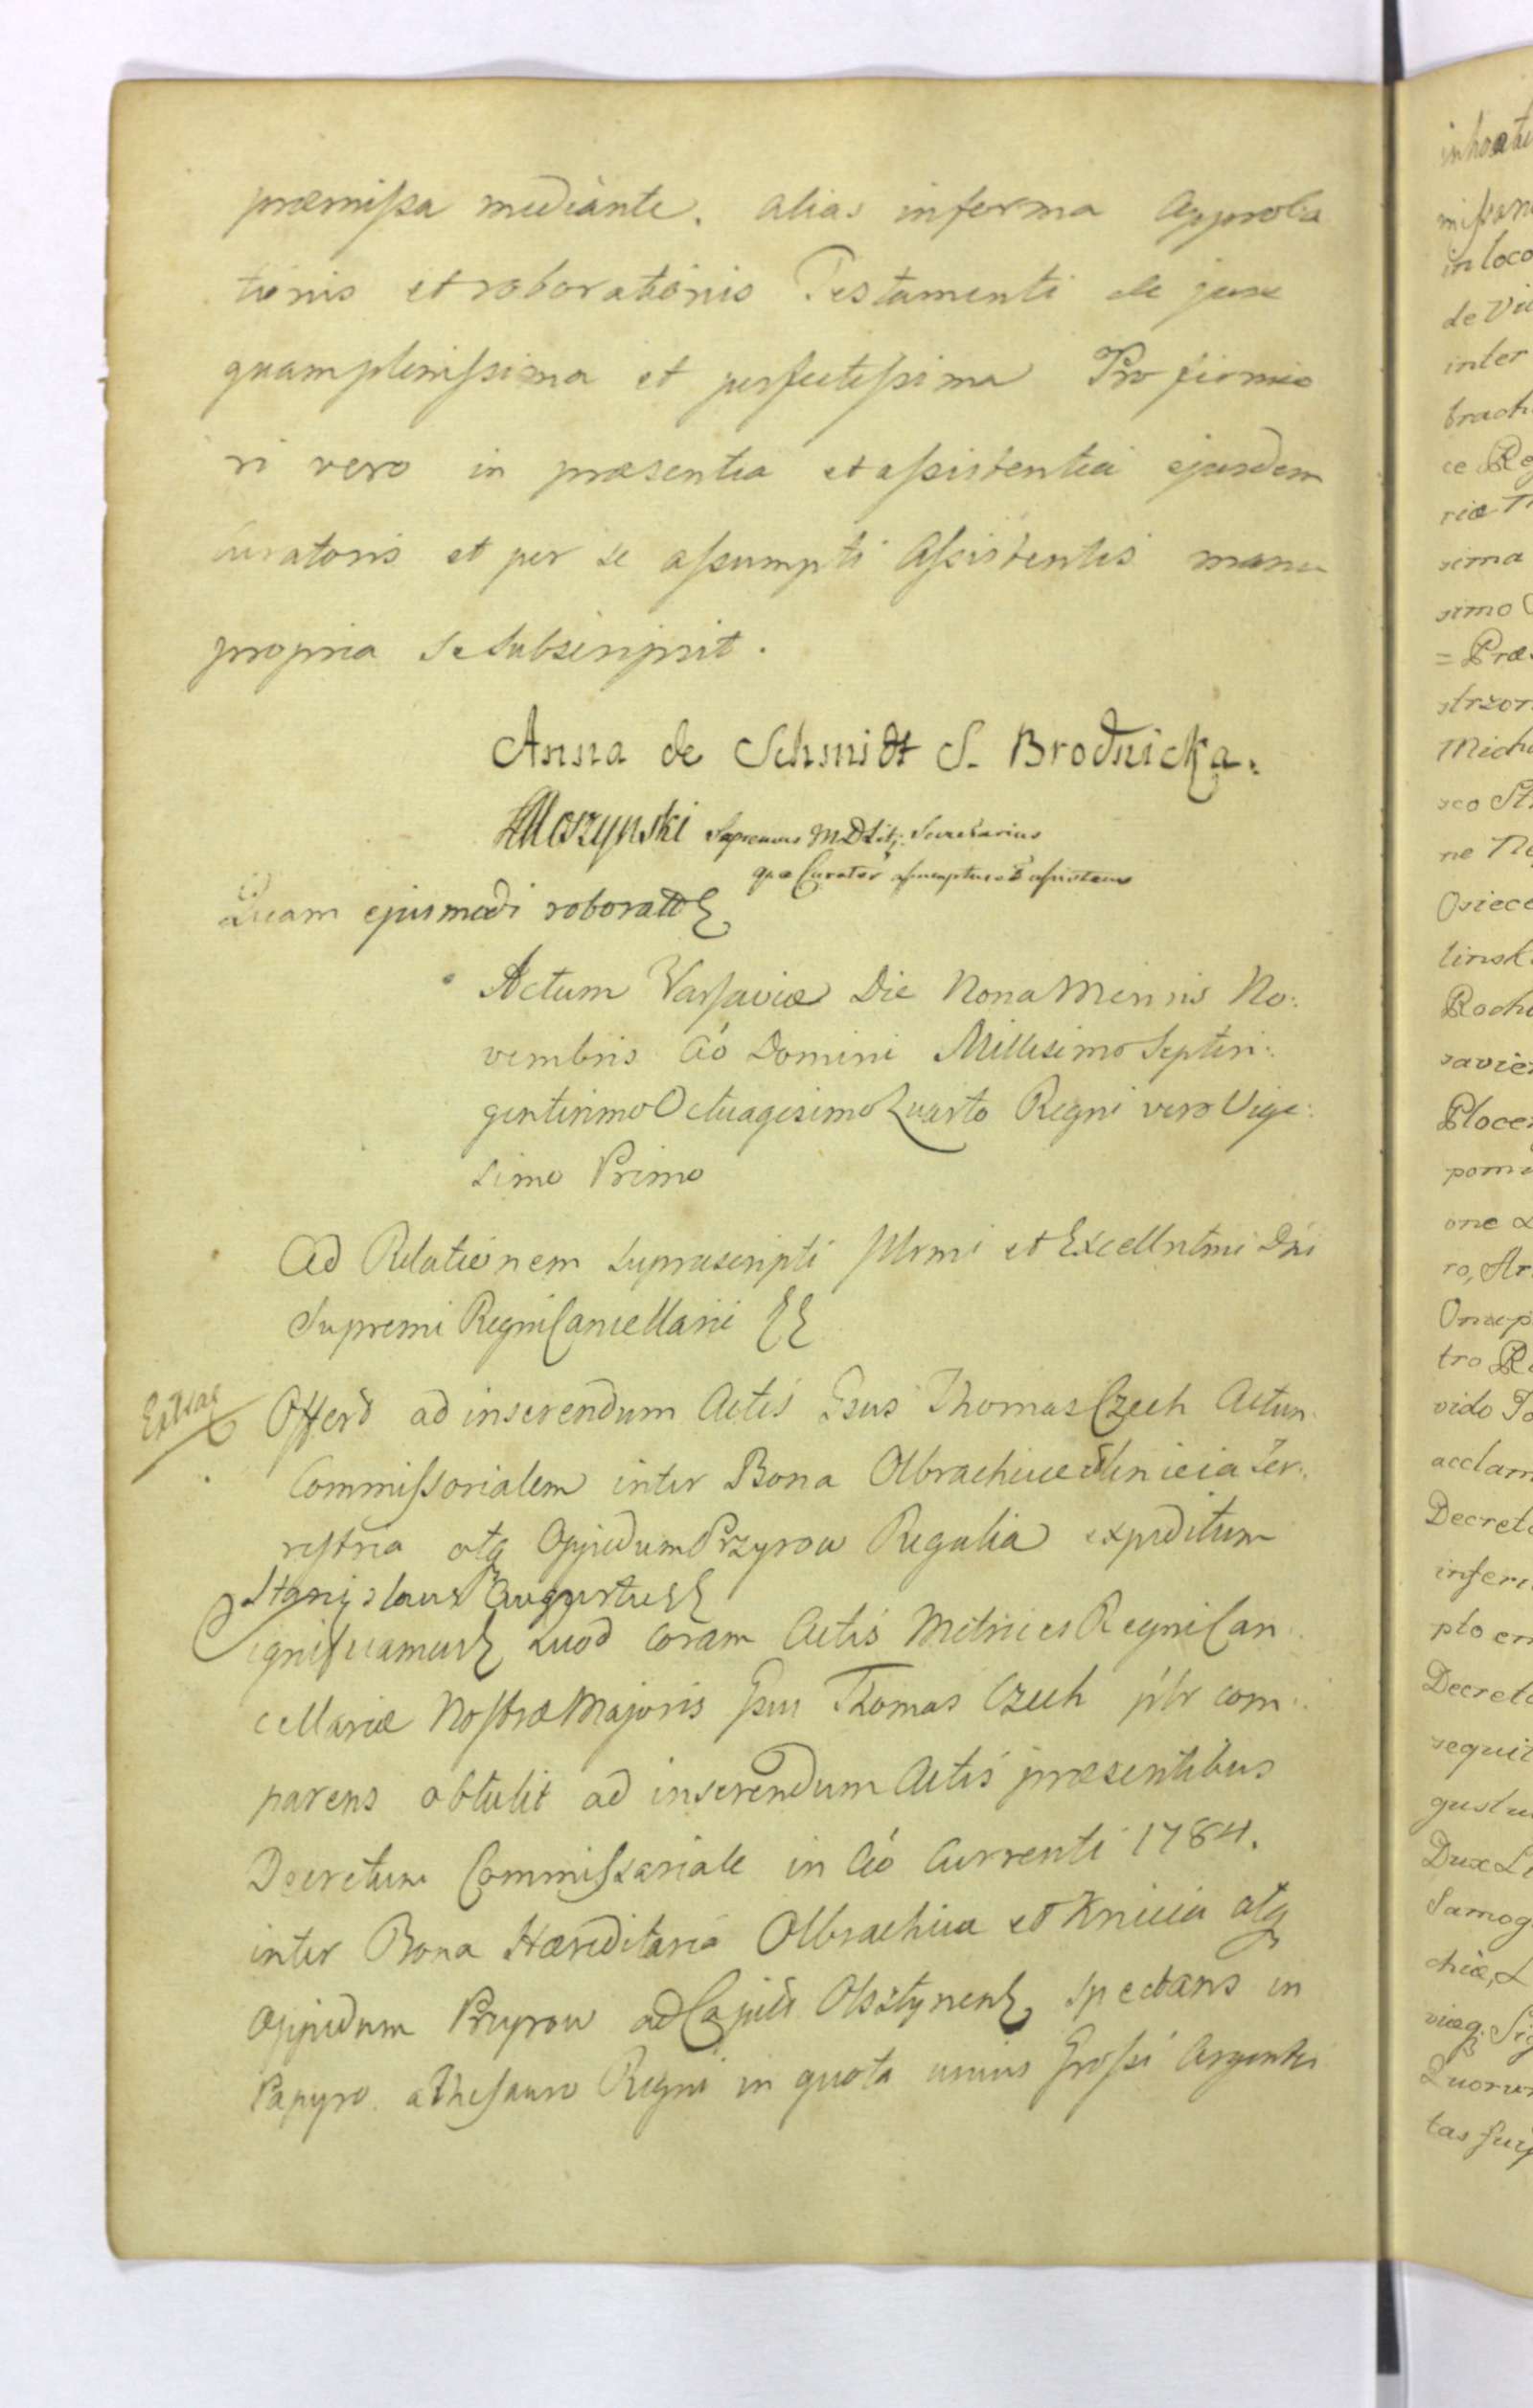 præmissa mediante. alias in forma Approba
tionis et roborationis Testamenti de jure
quamplenissima et perfectissima Pro firmio
ri vero in præsentia et assistentia ejusdem
Curatoris et per se assumpti Assistentis manu
propria Se Subscripsit.
Anna de Schmidt S. Brodnicka.
Moszynski Supremus M D Lit: Secretarius
qua Curator assumptus & assistens
Quam ejusmodi roborat
Actum Varsaviæ Die Nona Mensis No:
vembris Ao Domini Millesimo Septin:
gentesimo Octuagesimo Quarto Regni vero Vige:
simo Primo
Ad Relationem Suprascripti Illrmi et Excellntmi Dni
Supremi Regni Cancellarii
Extrad
Offert ad inserendum Actis Gsus Thomas Czech Actum
Commissorialem inter Bona Olbrachcice Knieia Ter:
restria atq Oppidum Przyrow Regalia expeditum
Stanislaus Augustus
Significamus Quod coram Actis Metrices Regni Can:
cellariæ Nostræ Majoris Gsus Thomas Czech plr com:
parens obtulit ad inserendum Actis præsentibus
Decretum Commissariale in Ao Currenti 1784.
inter Bona Hæreditaria Olbrachcia et Knieia atq
Oppidum Przyrow ad Capitt Olsztynen spectans in
Papyro a Thesauro Regni in quota unius Grossi Argentei
inter
in loco
sima
simo
Mich
Decreto
Decreto